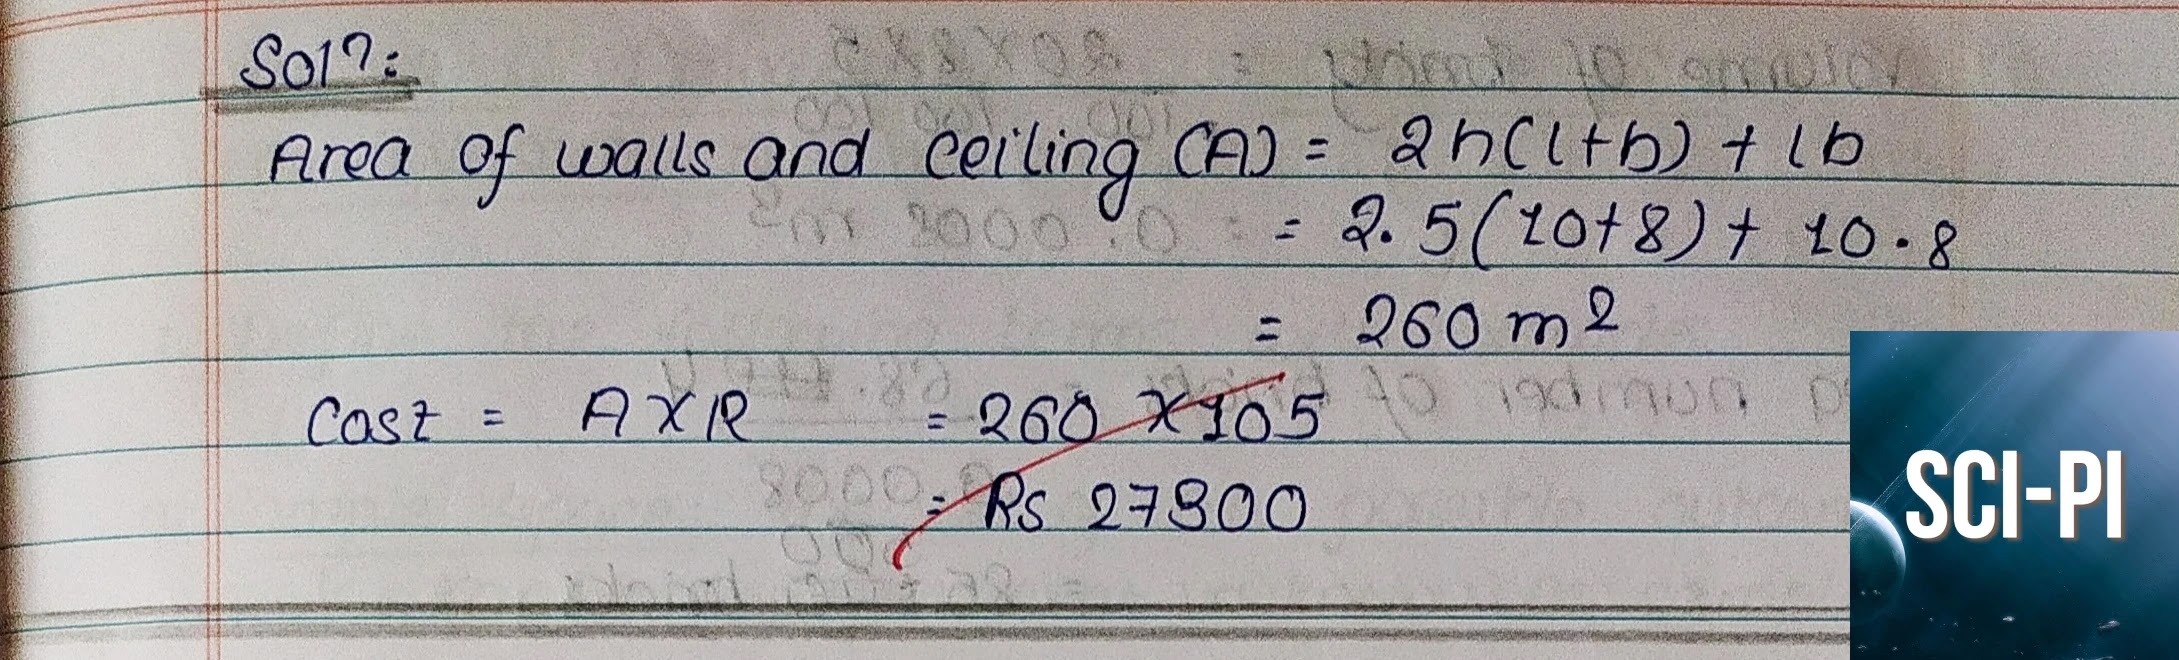 Soln:
Area of walls and ceiling (A) = 2h(l+b) + lb
= 2.5(10+8) + 10.8
= 260 m²
Cost = A X R = 260 X 105
= Rs 27300
SCI-PI